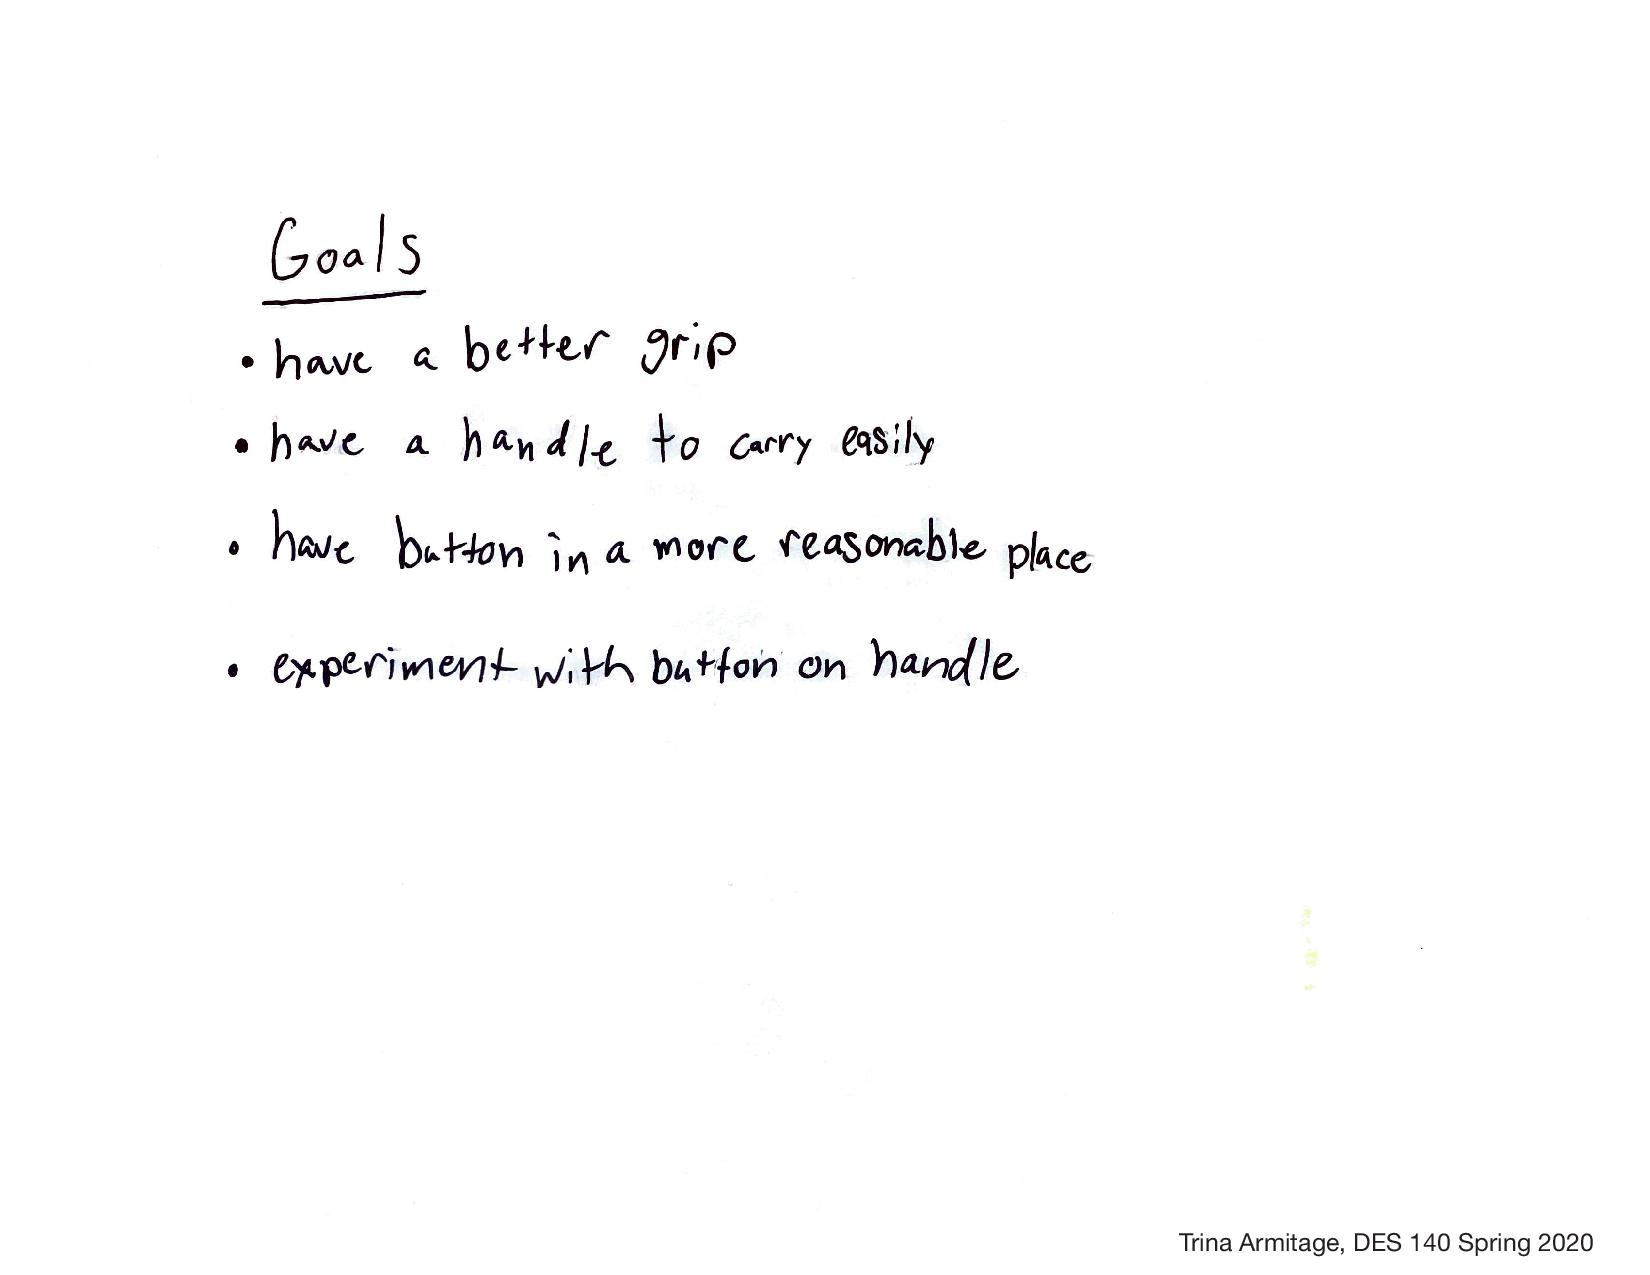 Goals
• have a better grip
• have a handle to carry easily
• have button in a more reasonable place
• experiment with button on handle
Trina Armitage, DES 140 Spring 2020